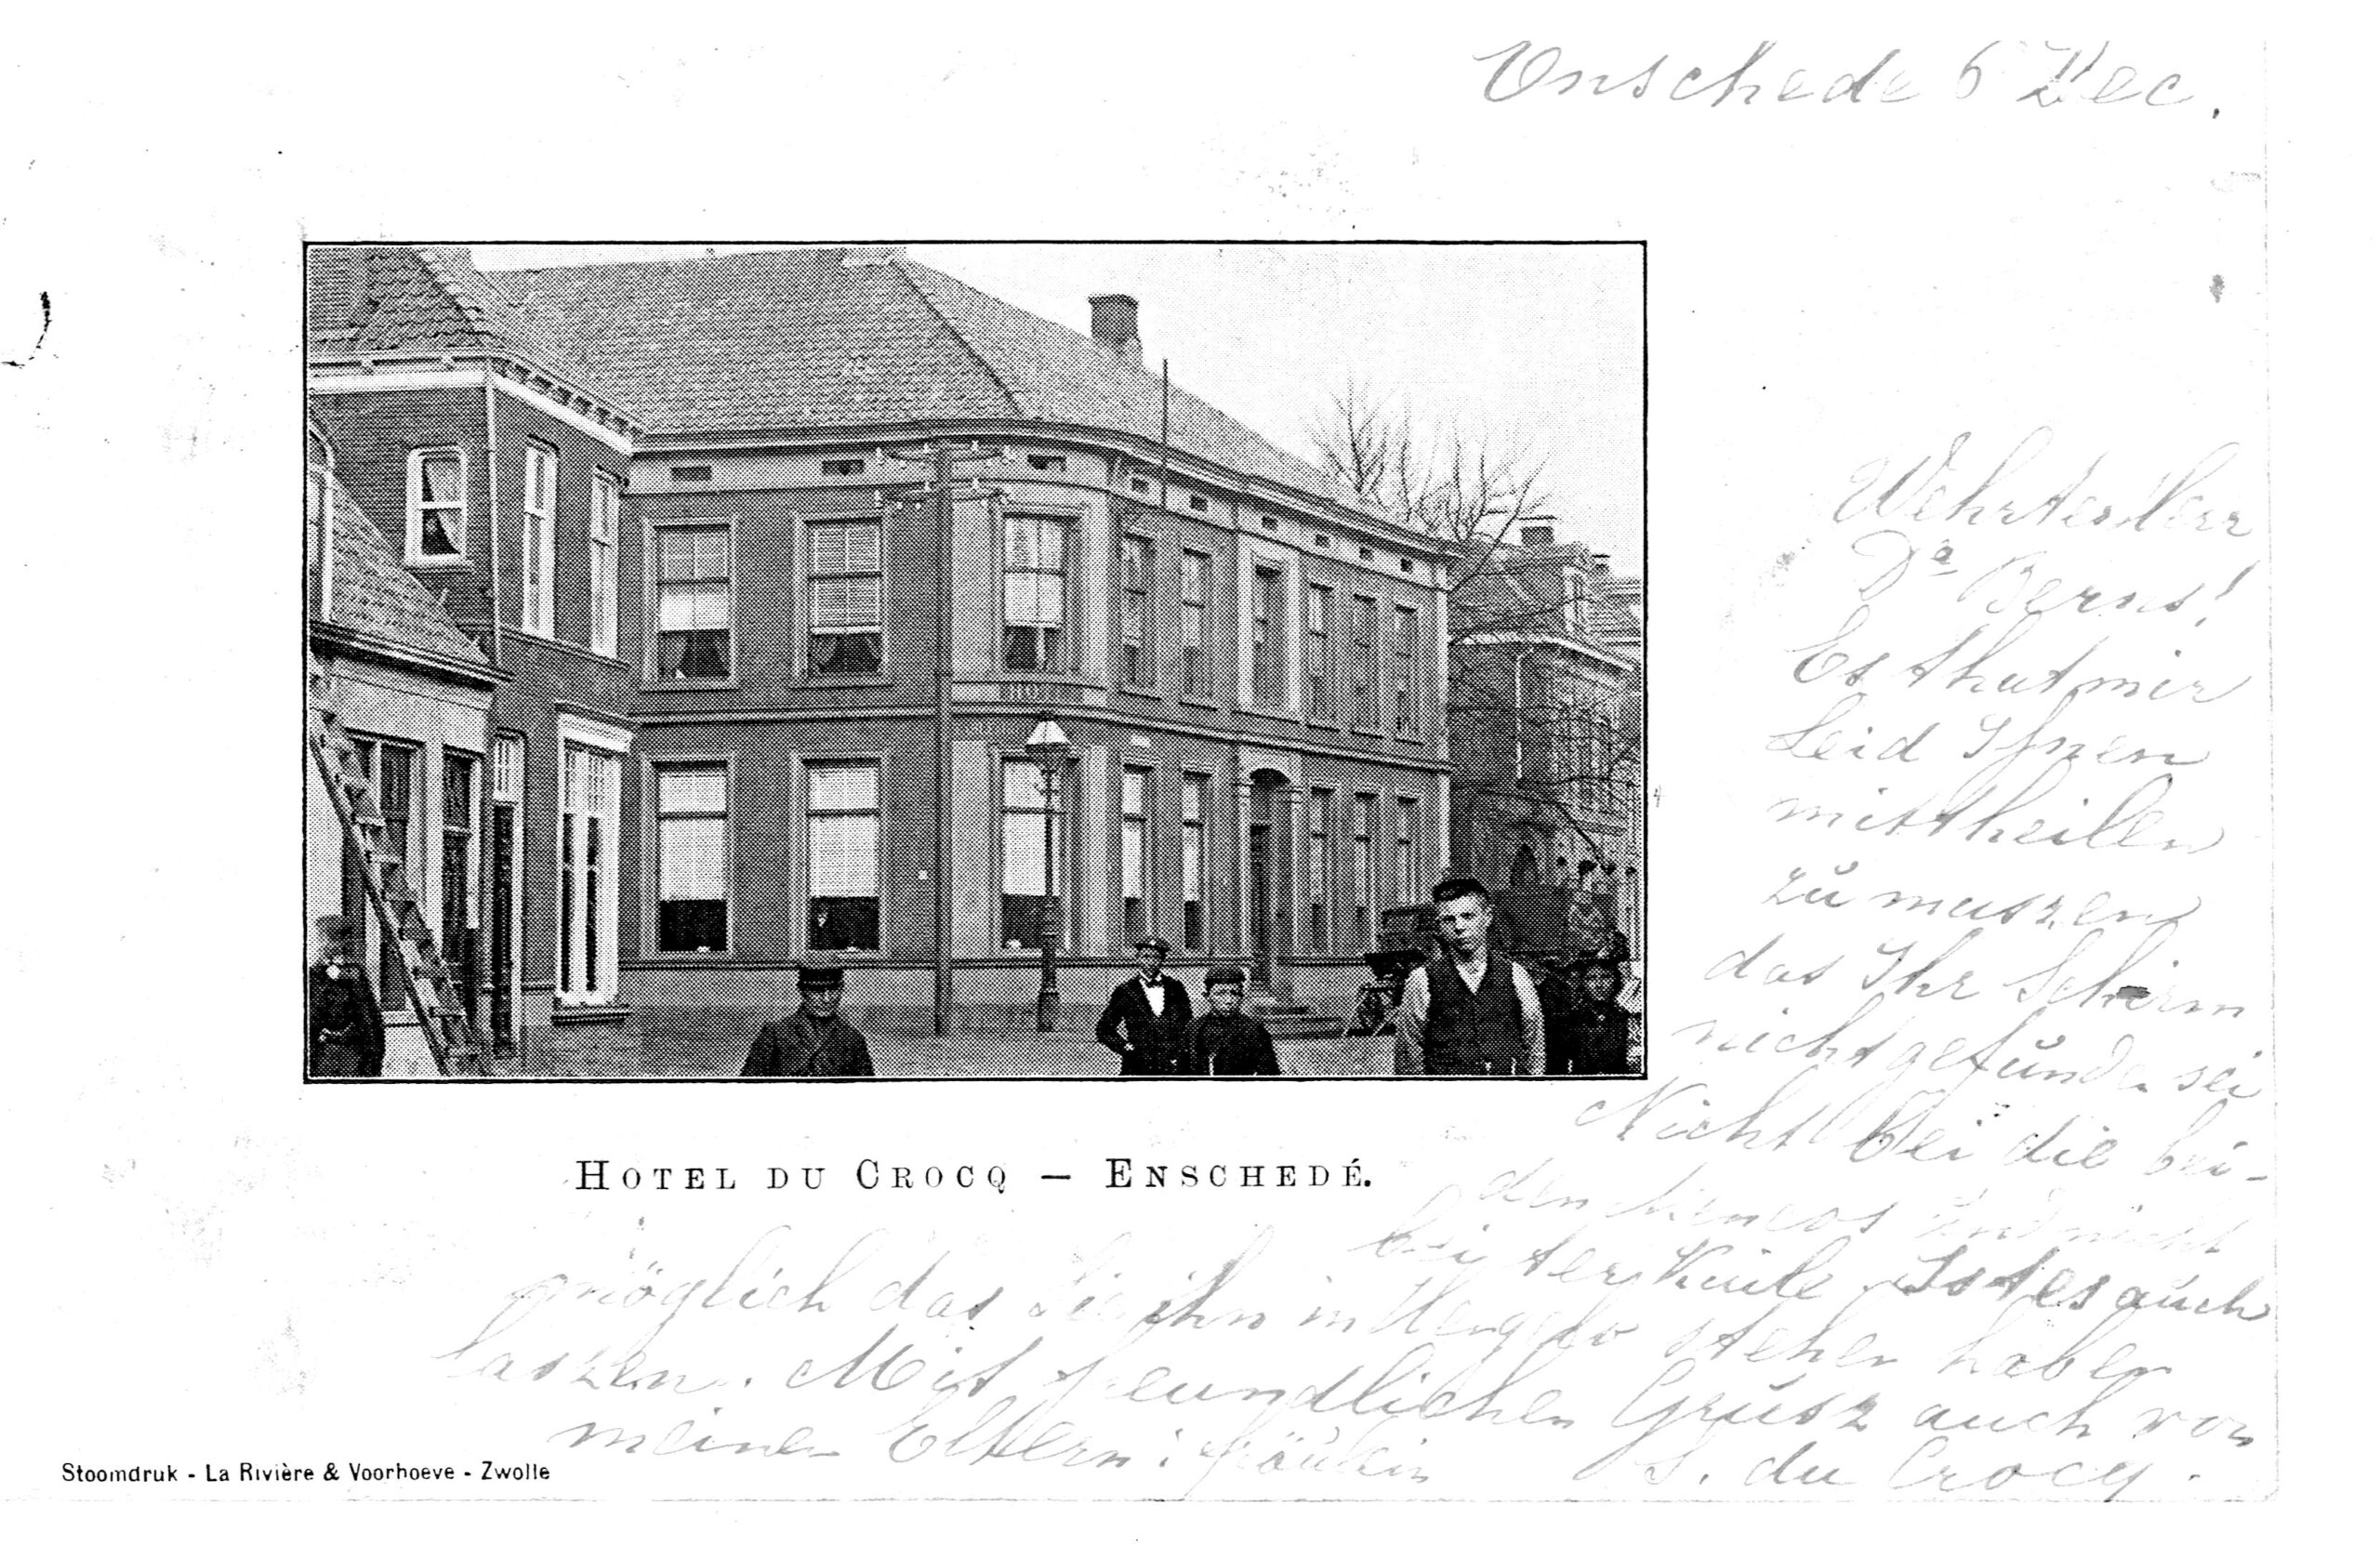 Enschede 6 Dec.
Wehrter Herr
Dr Berns!
Es thut mir
Leid Ihnen
mittheilen
zu muszen
das Ihr Schirm
nicht gefunden sei
Nicht bei die bei-
den und nicht
bei ter Kuile Ist es auch
möglich das Sie ihn in Hengelo stehen haben
laszen. Mit freundlichen Grusz auch von
meinen Eltern: fräulein S. du Crocq.
HO
HOTEL DU CROCQ — ENSCHEDÉ.
Stoomdruk - La Rivière & Voorhoeve - Zwolle